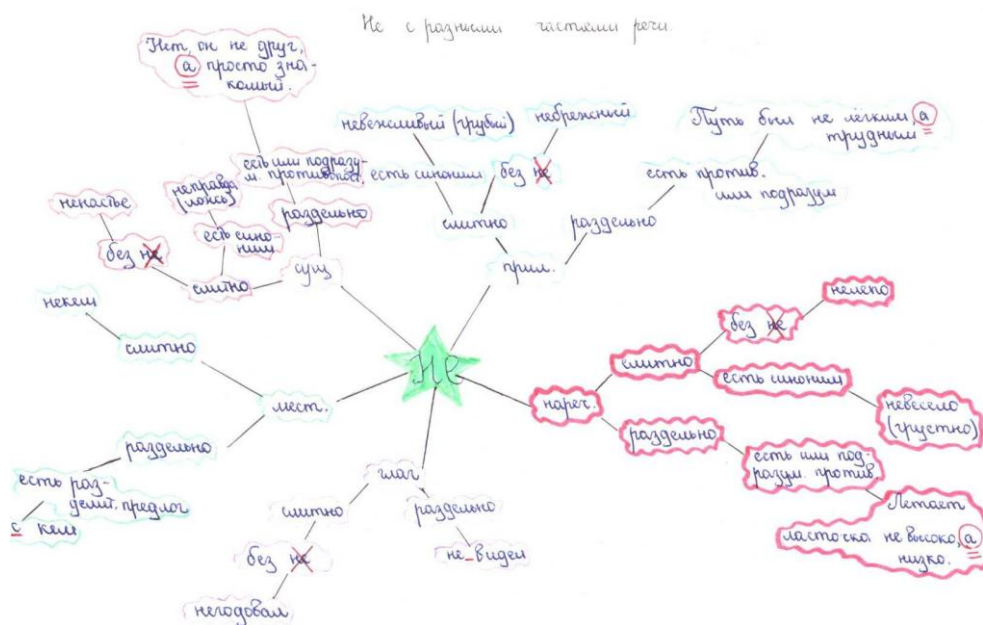 Не с разными частями речи.
Нет, он не друг,
а просто зна-
комый.
есть или подразу-
м. противопост.
раздельно
неправда
(ложь)
есть сино-
ним
ненастье
без не
слитно
сущ
невежливый (грубый)
небрежный
есть синоним
без не
слитно
Путь был не лёгким, а
трудным
есть против.
или подразум
раздельно
прил.
Не
некем
слитно
мест.
раздельно
есть раз-
делит. предлог
с кем
глаг
слитно
раздельно
без не
не видел
негодовал
нареч.
слитно
без не
нелепо
есть синоним
невесело
(грустно)
раздельно
есть или под-
разум. против.
Летает
ласточка не высоко, а
низко.